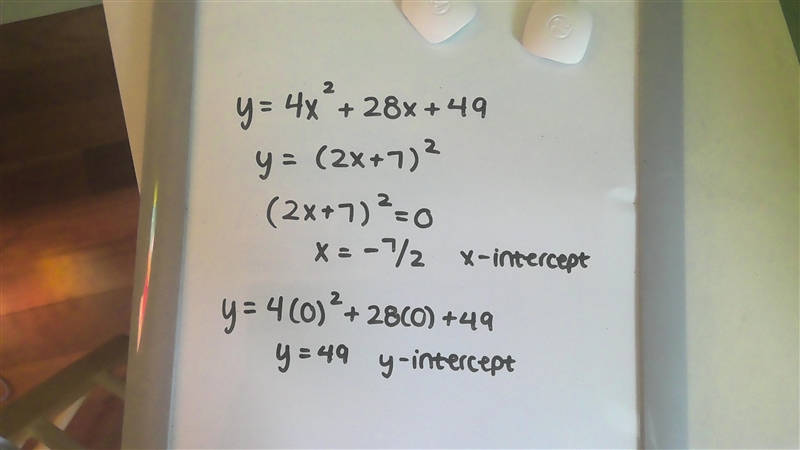 y = 4x² + 28x + 49
y = (2x+7)²
(2x+7)² = 0
x = -7/2 x-intercept
y = 4(0)² + 28(0) + 49
y = 49 y-intercept